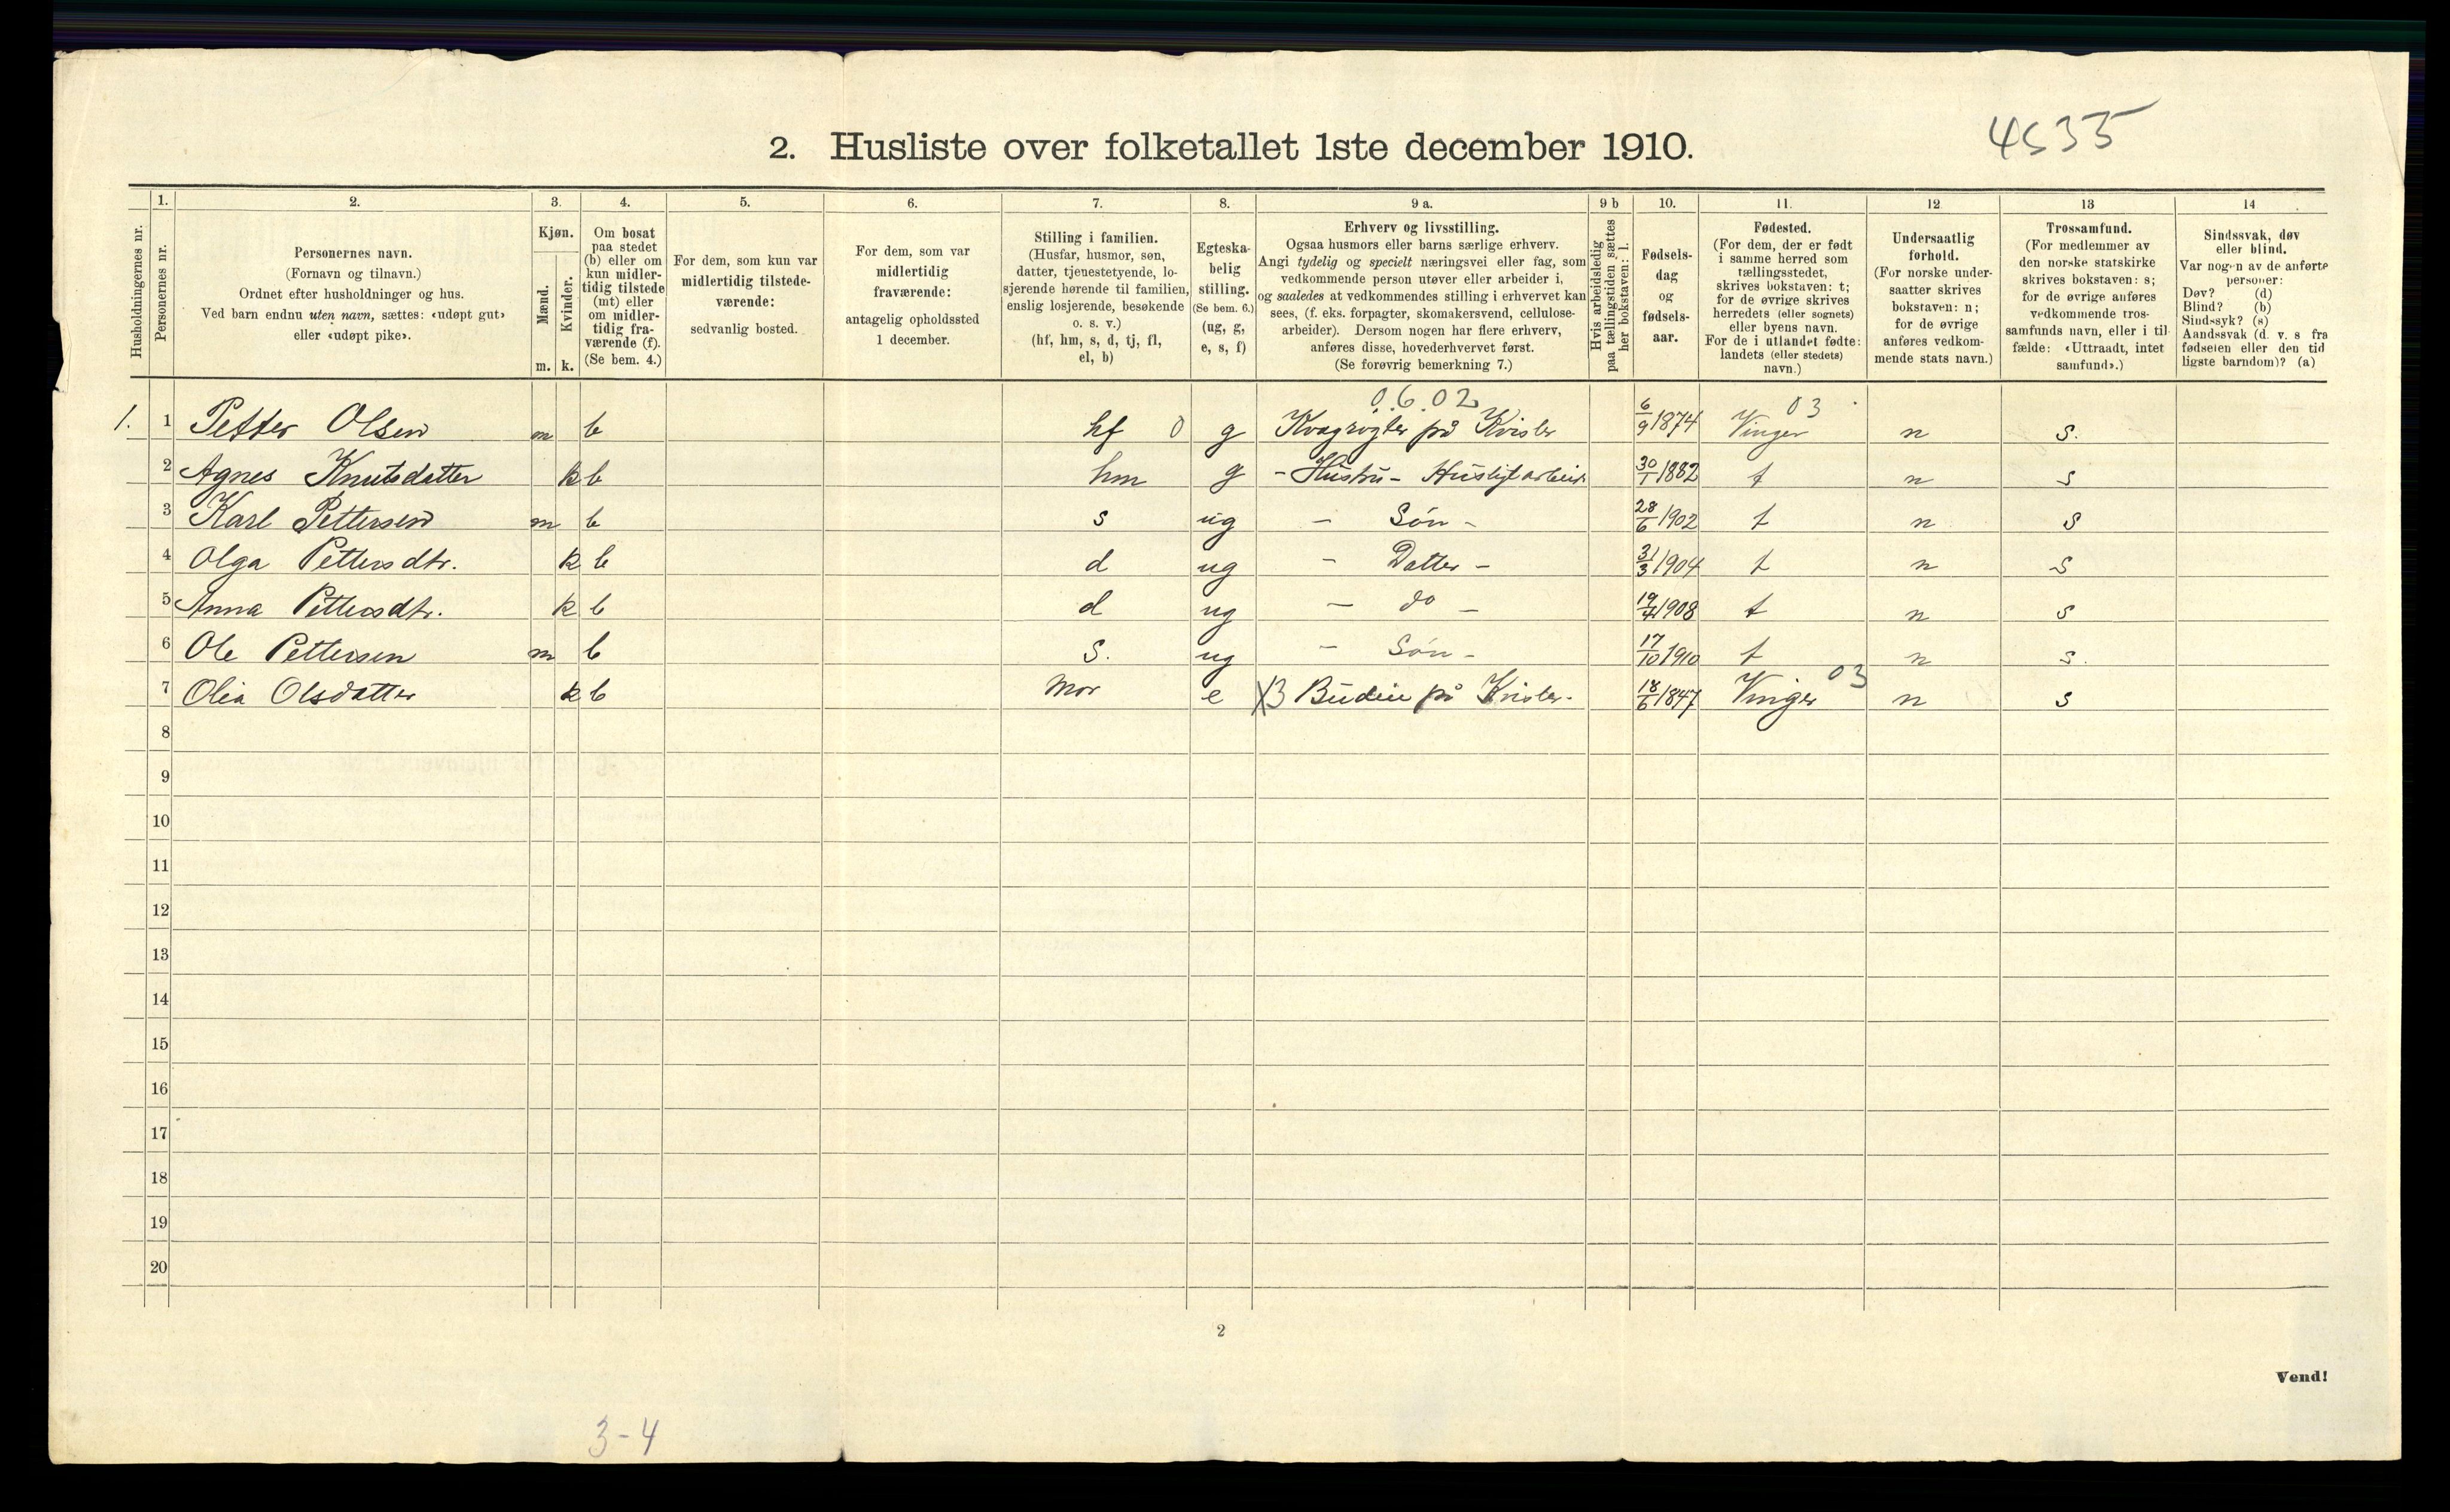 4535
2. Husliste over folketallet 1ste december 1910.
Husholdningernes nr.
1. Personernes nr.
2. Personernes navn.
(Fornavn og tilnavn.)
Ordnet efter husholdninger og hus.
Ved barn endnu uten navn, sættes: «udøpt gut»
eller «udøpt pike».
3. Kjøn.
Mænd. m.
Kvinder. k.
4. Om bosat
paa stedet
(b) eller om
kun midler-
tidig tilstede
(mt) eller
om midler-
tidig fra-
værende (f).
(Se bem. 4.)
5. For dem, som kun var
midlertidig tilstede-
værende:
sedvanlig bosted.
6. For dem, som var
midlertidig
fraværende:
antagelig opholdssted
1 december.
7. Stilling i familien.
(Husfar, husmor, søn,
datter, tjenestetyende, lo-
sjerende hørende til familien,
enslig losjerende, besøkende
o. s. v.)
(hf, hm, s, d, tj, fl,
el, b)
8. Egteska-
belig
stilling.
(Se bem. 6.)
(ug, g,
e, s, f)
9 a. Erhverv og livsstilling.
Ogsaa husmors eller barns særlige erhverv.
Angi tydelig og specielt næringsvei eller fag, som
vedkommende person utøver eller arbeider i,
og saaledes at vedkommendes stilling i erhvervet kan
sees, (f. eks. forpagter, skomakersvend, cellulose-
arbeider). Dersom nogen har flere erhverv,
anføres disse, hovederhvervet først.
(Se forøvrig bemerkning 7.)
9 b Hvis arbeidsledig
paa tællingstiden sættes
her bokstaven: l.
10. Fødsels-
dag
og
fødsels-
aar.
11. Fødested.
(For dem, der er født
i samme herred som
tællingsstedet,
skrives bokstaven: t;
for de øvrige skrives
herredets (eller sognets)
eller byens navn.
For de i utlandet fødte:
landets (eller stedets)
navn.)
12. Undersaatlig
forhold.
(For norske under-
saatter skrives
bokstaven: n;
for de øvrige
anføres vedkom-
mende stats navn.)
13 Trossamfund.
(For medlemmer av
den norske statskirke
skrives bokstaven: s;
for de øvrige anføres
vedkommende tros-
samfunds navn, eller i til-
fælde: «Uttraadt, intet
samfund».)
14 Sindssvak, døv
eller blind.
Var nogen av de anførte
personer:
Døv? (d)
Blind? (b)
Sindssyk? (s)
Aandssvak (d. v. s fra
fødselen eller den tid
ligste barndom)? (a)
0.6.02 03
1. 1 Petter Olsen m b hf 0 g Kvægrøgter på Kvisler 6/9 1874 Vinger n s.
2 Agnes Knutsdatter k b hm g - Hustru - Husligt arbeide 30/1 1882 t n s
3 Karl Pettersen m b s ug - Søn - 28/6 1902 t n s
4 Olga Pettersdtr. k b d ug - Datter - 31/3 1904 t n s
5 Anna Pettersdtr. k b d ug - do - 19/4 1908 t n s
6 Ole Pettersen m b s. ug - Søn - 17/10 1910 t n s.
7 Olia Olsdatter k b Mor e X3 Budeie på Kvisler. 18/6 1847 Vinger 03 n s
8
9
10
11
12
13
14
15
16
17
18
19
20
2
Vend!
3-4